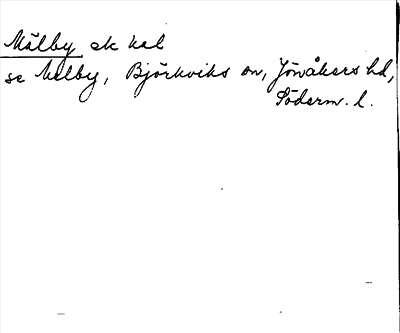 Mälby ek kal
se Melby, Björkviks sn, Jönåkers hd,
Söderm. l.